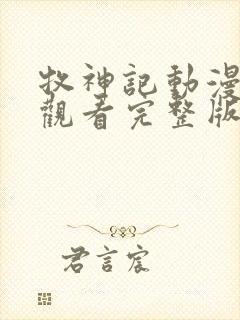 牧神記動漫
觀看完整版
君言宸